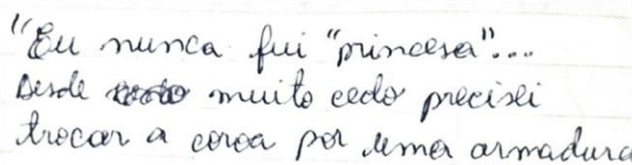 "Eu nunca fui "princesa"...
Desde muito cedo precisei
trocar a coroa por uma armadura